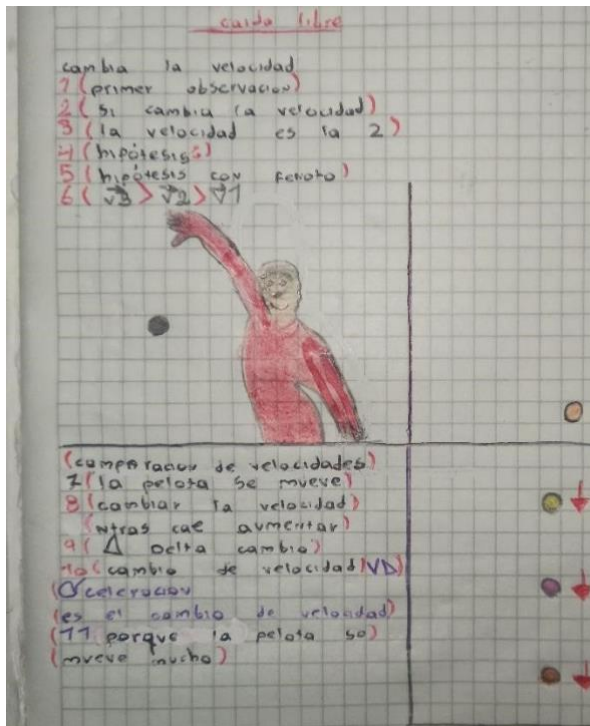 caida libre
cambia la velocidad
1 (primer observacion)
2 (si cambia la velocidad)
3 (la velocidad es la 2)
4 (hipótesis:)
5 (hipótesis con
6 (V3 > V2 > V1
(comparacion de velocidades)
7 (la pelota se mueve)
8 (cambiar la velocidad)
(ntras cae aumentar)
9 (Δ Delta cambio)
10 (cambio de velocidad) VD)
(aceleracion
(es el cambio de velocidad)
(11 porque la pelota se)
(mueve mucho)